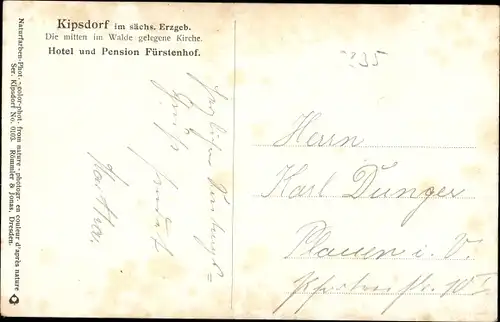 Kipsdorf im sächs. Erzgeb.
Die mitten im Walde gelegene Kirche.
Hotel und Pension Fürstenhof.
Naturfarben-Phot. - color-phot. from nature - photogr. en couleur d'après nature
Ser. Kipsdorf No. 0103. Römmler & Jonas, Dresden.
Herzlichen
Gruß sendet
Herrn
Karl Dunger
Plauen i. V.